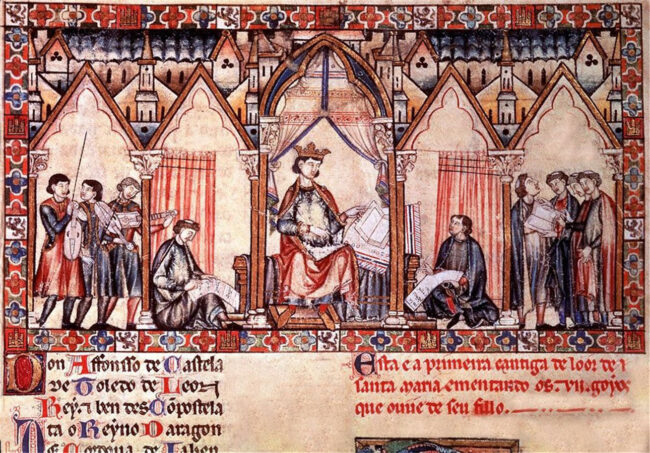 Don Affonsso de Castela
de Toledo de Leon
Rey ⁊ ben des Cõpostela
Ata o Reyno daragon
De Cordoua de Jahen
Esta e a primeira cantiga de loor de
santa maria ementando os .vii. goyos
que ouue de seu fillo.